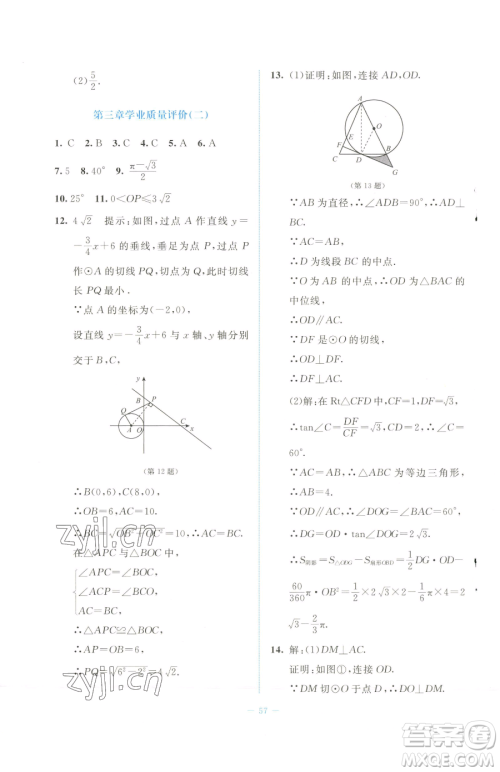 (2) 5/2.
第三章学业质量评价(二)
1. C  2. B  3. C  4. C  5. A  6. A
7. 5  8. 40°  9. (π-√3)/2
10. 25°  11. 0<OP≤3√2
12. 4√2 提示:如图,过点 A 作直线 y=
-3/4x+6 的垂线,垂足为点 P,过点 P
作⊙A 的切线 PQ,此时切线
长 PQ 最小.
∵点 A 的坐标为(-2,0),
设直线 y=-3/4x+6 与 x 轴、y 轴分别
交于 B,C,
y
B
P
Q
A
O
C
x
(第 12 题)
∴B(0,6),C(8,0),
∴OB=6,AC=10.
∴BC=√(OB²+OC²)=10,
∴AC=BC.
∠APC=∠BOC,
∠ACP=∠BCO,
AC=BC,
∴△APC≌△BOC,
∴AP=OB=6,
∴PQ=√(6²-2²)=4√2.
13. (1)证明:如图,连接 AD,OD.
A
O
E
F
C
D
B
G
(第 13 题)
∵AB 为直径,∴∠ADB=90°,
∵AB=AC,
∴D 为线段 BC 的中点,
∵O 为 AB 的中点,∴OD 为△ABC 的
中位线,
∴OD∥AC.
∵DF 是⊙O 的切线,
∴OD⊥DF,∴DF⊥AC.
(2)解:在 Rt△CFD 中,CF=1,DF=√3,
∴tan∠C=DF/CF=√3,∴∠C=60°,
∵AC=AB,∴△ABC 为等边三角形,
∴AB=4.
∵OD∥AC,∴∠DOG=∠BAC=60°,
∴DG=OD·tan∠DOG=2√3,
∴S阴影=S△ODG-S扇形OBD=1/2DG·OD-
60/360π·OB²=1/2×2√3×2-1/6π×2²
=2√3-2/3π.
14. 解:(1)DM⊥AC.
证明:如图①,连接 OD.
∵DM 切⊙O 于点 D,∴DM⊥OD.
57
zyjl.cn
zyjl.cn